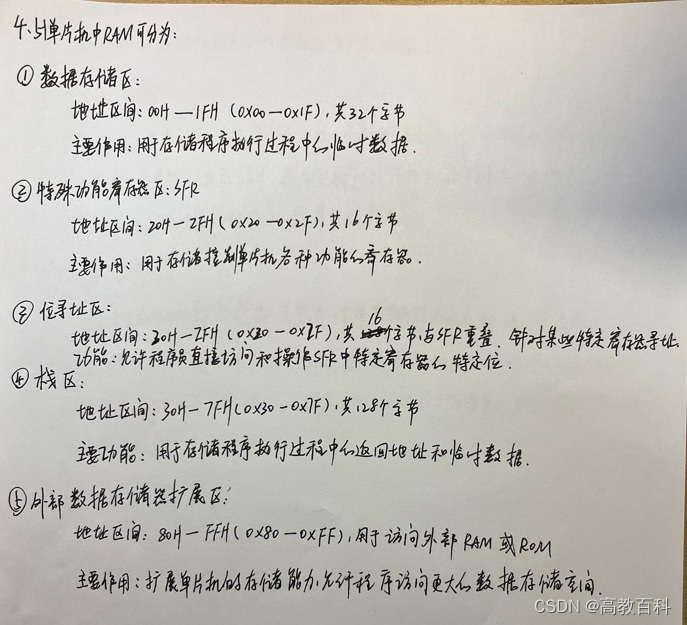 4、51单片机中RAM可分为：
① 数据存储区：
地址区间：00H—1FH（0x00—0x1F），共32个字节
主要作用：用于存储程序执行过程中的临时数据．
② 特殊功能寄存器区：SFR
地址区间：20H—2FH（0x20—0x2F），共16个字节
主要作用：用于存储控制单片机各种功能的寄存器．
③ 位寻址区：
地址区间：20H—2FH（0x20—0x2F），共16个字节，与SFR重叠．针对某些特定寄存器寻址
功能：允许程序员直接访问和操作SFR中特定寄存器的特定位．
④ 栈区：
地址区间：30H—7FH（0x30—0x7F），共128个字节
主要功能：用于存储程序执行过程中的返回地址和临时数据．
⑤ 外部数据存储器扩展区：
地址区间：80H—FFH（0x80—0xFF），用于访问外部RAM或ROM
主要作用：扩展单片机的存储能力，允许程序访问更大的数据存储空间．
CSDN @高教百科